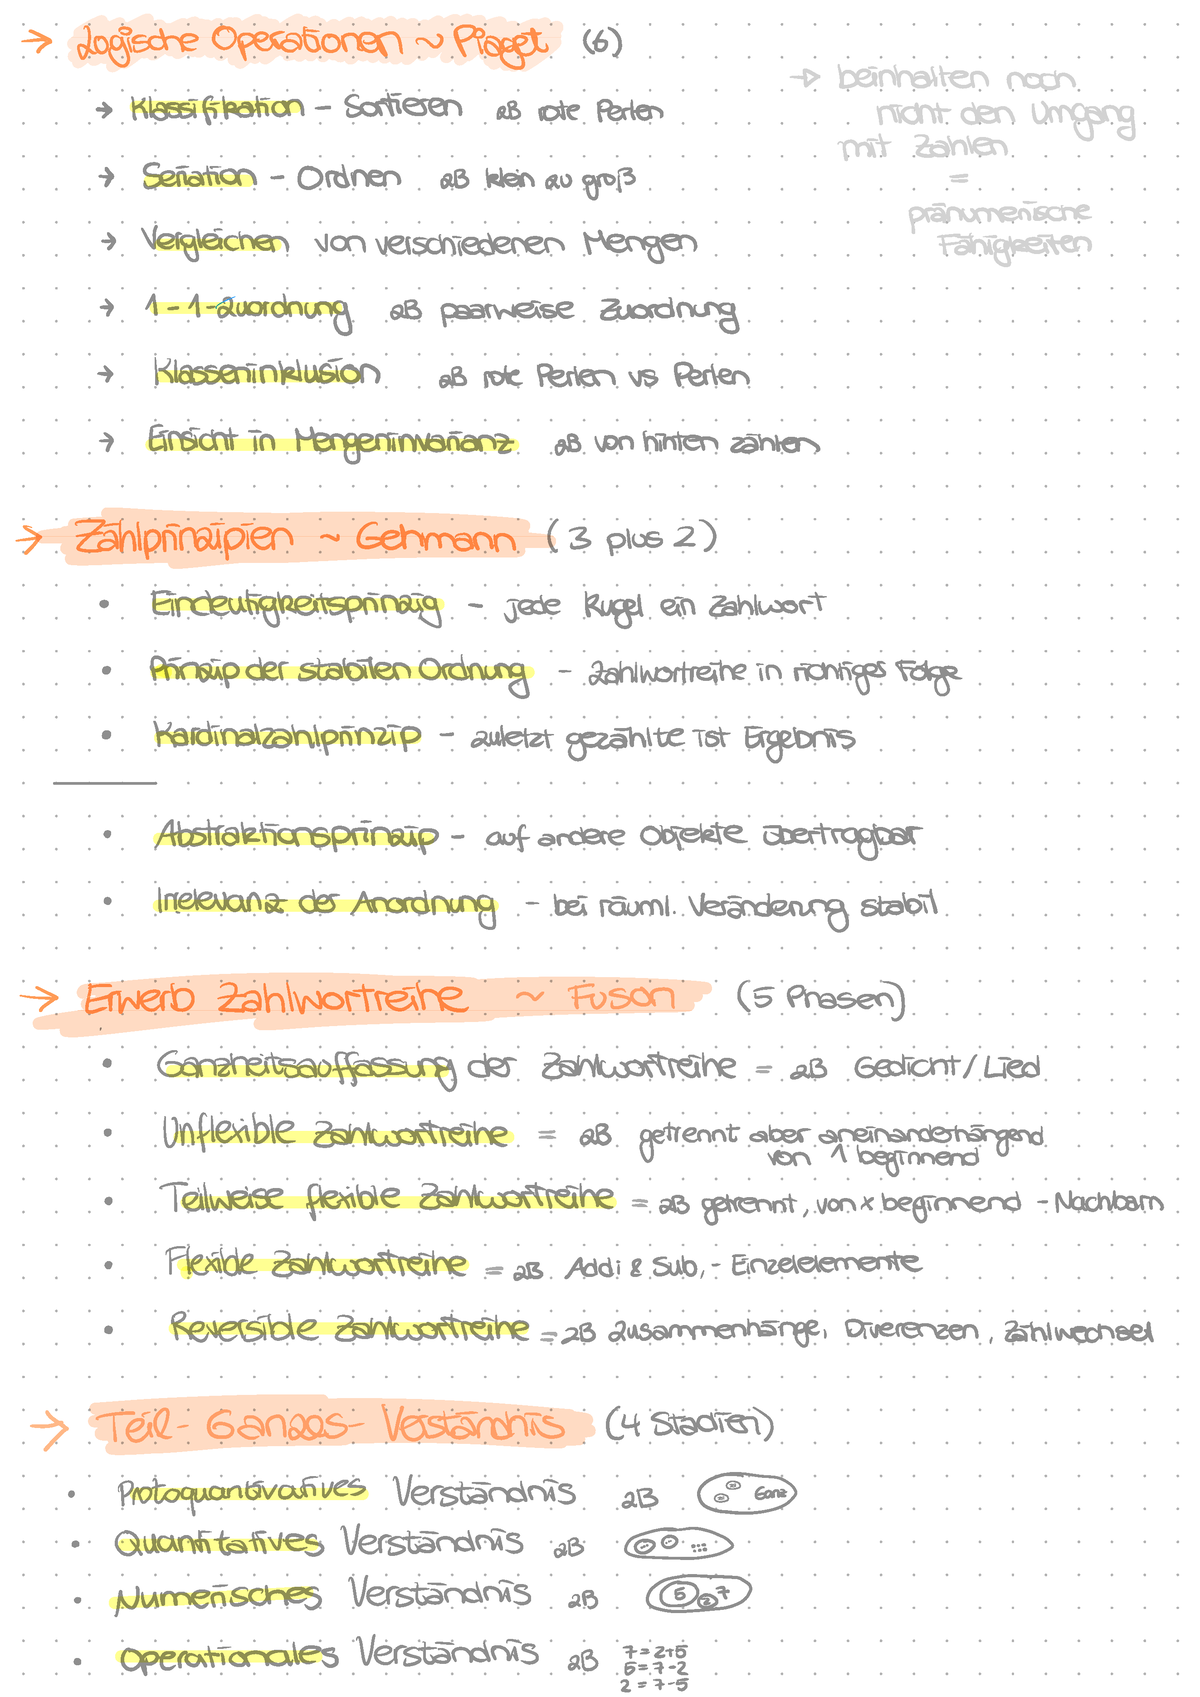 → Logische Operationen ~ Piaget (6)
→ Klassifikation – Sortieren zB rote Perlen
→ Seriation – Ordnen zB klein zu groß
→ Vergleichen von verschiedenen Mengen
→ 1-1-Zuordnung zB paarweise Zuordnung
→ Klasseninklusion zB rote Perlen vs Perlen
→ Einsicht in Mengeninvarianz zB von hinten zählen
→ beinhalten noch
nicht den Umgang
mit Zahlen
=
pränumerische
Fähigkeiten
→ Zählprinzipien ~ Gehmann (3 plus 2)
• Eindeutigkeitsprinzig – jede Kugel ein Zahlwort
• Prinzip der stabilen Ordnung – Zahlwortreihe in richtiges Folge
• Kardinalzahlprinzip – zuletzt gezählte ist Ergebnis
• Abstraktionsprinzip – auf andere Objekte übertragbar
• Irrelevanz der Anordnung – bei räuml. Veränderung stabil
→ Erwerb Zahlwortreihe ~ Fuson (5 Phasen)
• Ganzheitsauffassung der Zahlwortreihe = zB Gedicht/Lied
• Unflexible Zahlwortreihe = zB getrennt aber aneinanderhängend
von 1 beginnend
• Teilweise flexible Zahlwortreihe = zB getrennt, von x beginnend – Nachbarn
• Flexible Zahlwortreihe = zB Addi & Sub, - Einzelelemente
• Reversible Zahlwortreihe = zB Zusammenhänge, Diverenzen, Zählwechsel
→ Teil- Ganzes- Verständnis (4 Stadien)
• Protoquantivatives Verständnis zB Ganz
• Quantitatives Verständnis zB
• Numerisches Verständnis zB 5 2 7
• Operationales Verständnis zB 7=2+5
5=7-2
2=7-5